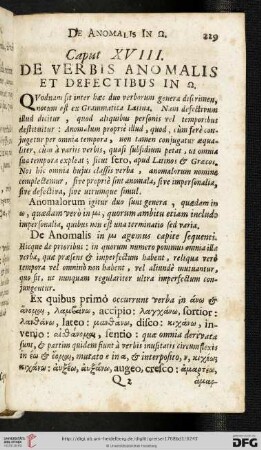 DE ANOMALIS IN Ω. 219
Caput XVIII.
DE VERBIS ANOMALIS
ET DEFECTIBUS IN Ω.
QVodnam sit inter hæc duo verborum genera discrimen,
notum est ex Grammatica Latina. Nam defectivum
illud dicitur, quod aliquibus personis vel temporibus
destituitur: Anomalum proprie illud, quod, cùm ferè con-
jugetur per omnia tempora, non tamen conjugatur æqua-
liter, cùm à variis verbis, quasi subsidium petat, ut omnia
sua tempora expleat; sicut fero, apud Latinos & Græcos.
Nos hic omnia hujus classis verba, anomalorum nomine
complectemur, sive propriè sint anomala, sive impersonalia,
sive defectiva, sive utrumque simul.
Anomalorum igitur duo sunt genera, quædam in
ω, quædam verò in μι, quorum ambitu etiam includo
impersonalia, quibus non est una terminatio sed varia.
De Anomalis in μι agemus capite sequenti.
Hicque de prioribus: in quorum numero ponimus omnia illa
verba, quæ præsens & imperfectum habent, reliqua verò
tempora vel omninò non habent, vel aliunde mutuantur,
quo fit, ut nunquam regulariter ultra imperfectum con-
jugentur.
Ex quibus primò occurrunt verba in άνω &
άνομαι, λαμβάνω, accipio: λαγχάνω, sortior:
λανθάνω, lateo: μανθάνω, disco: κιχάνω, in-
venio: αἰσθάνομαι, sentio: quæ omnia derivata
sunt, & partim quidem fiunt à verbis inusitatis circumflexis
in έω & έομαι, mutato ε in α, & interposito, ν, κιχέω,
κιχάνω: αὐξέω, αὐξάνω, augeo, cresco: ἁμαρτέω,
Q 2 ἁμαρ-
http://digi.ub.uni-heidelberg.de/diglit/
© Universitätsbibliothek Heidelberg
gefördert durch die
DFG